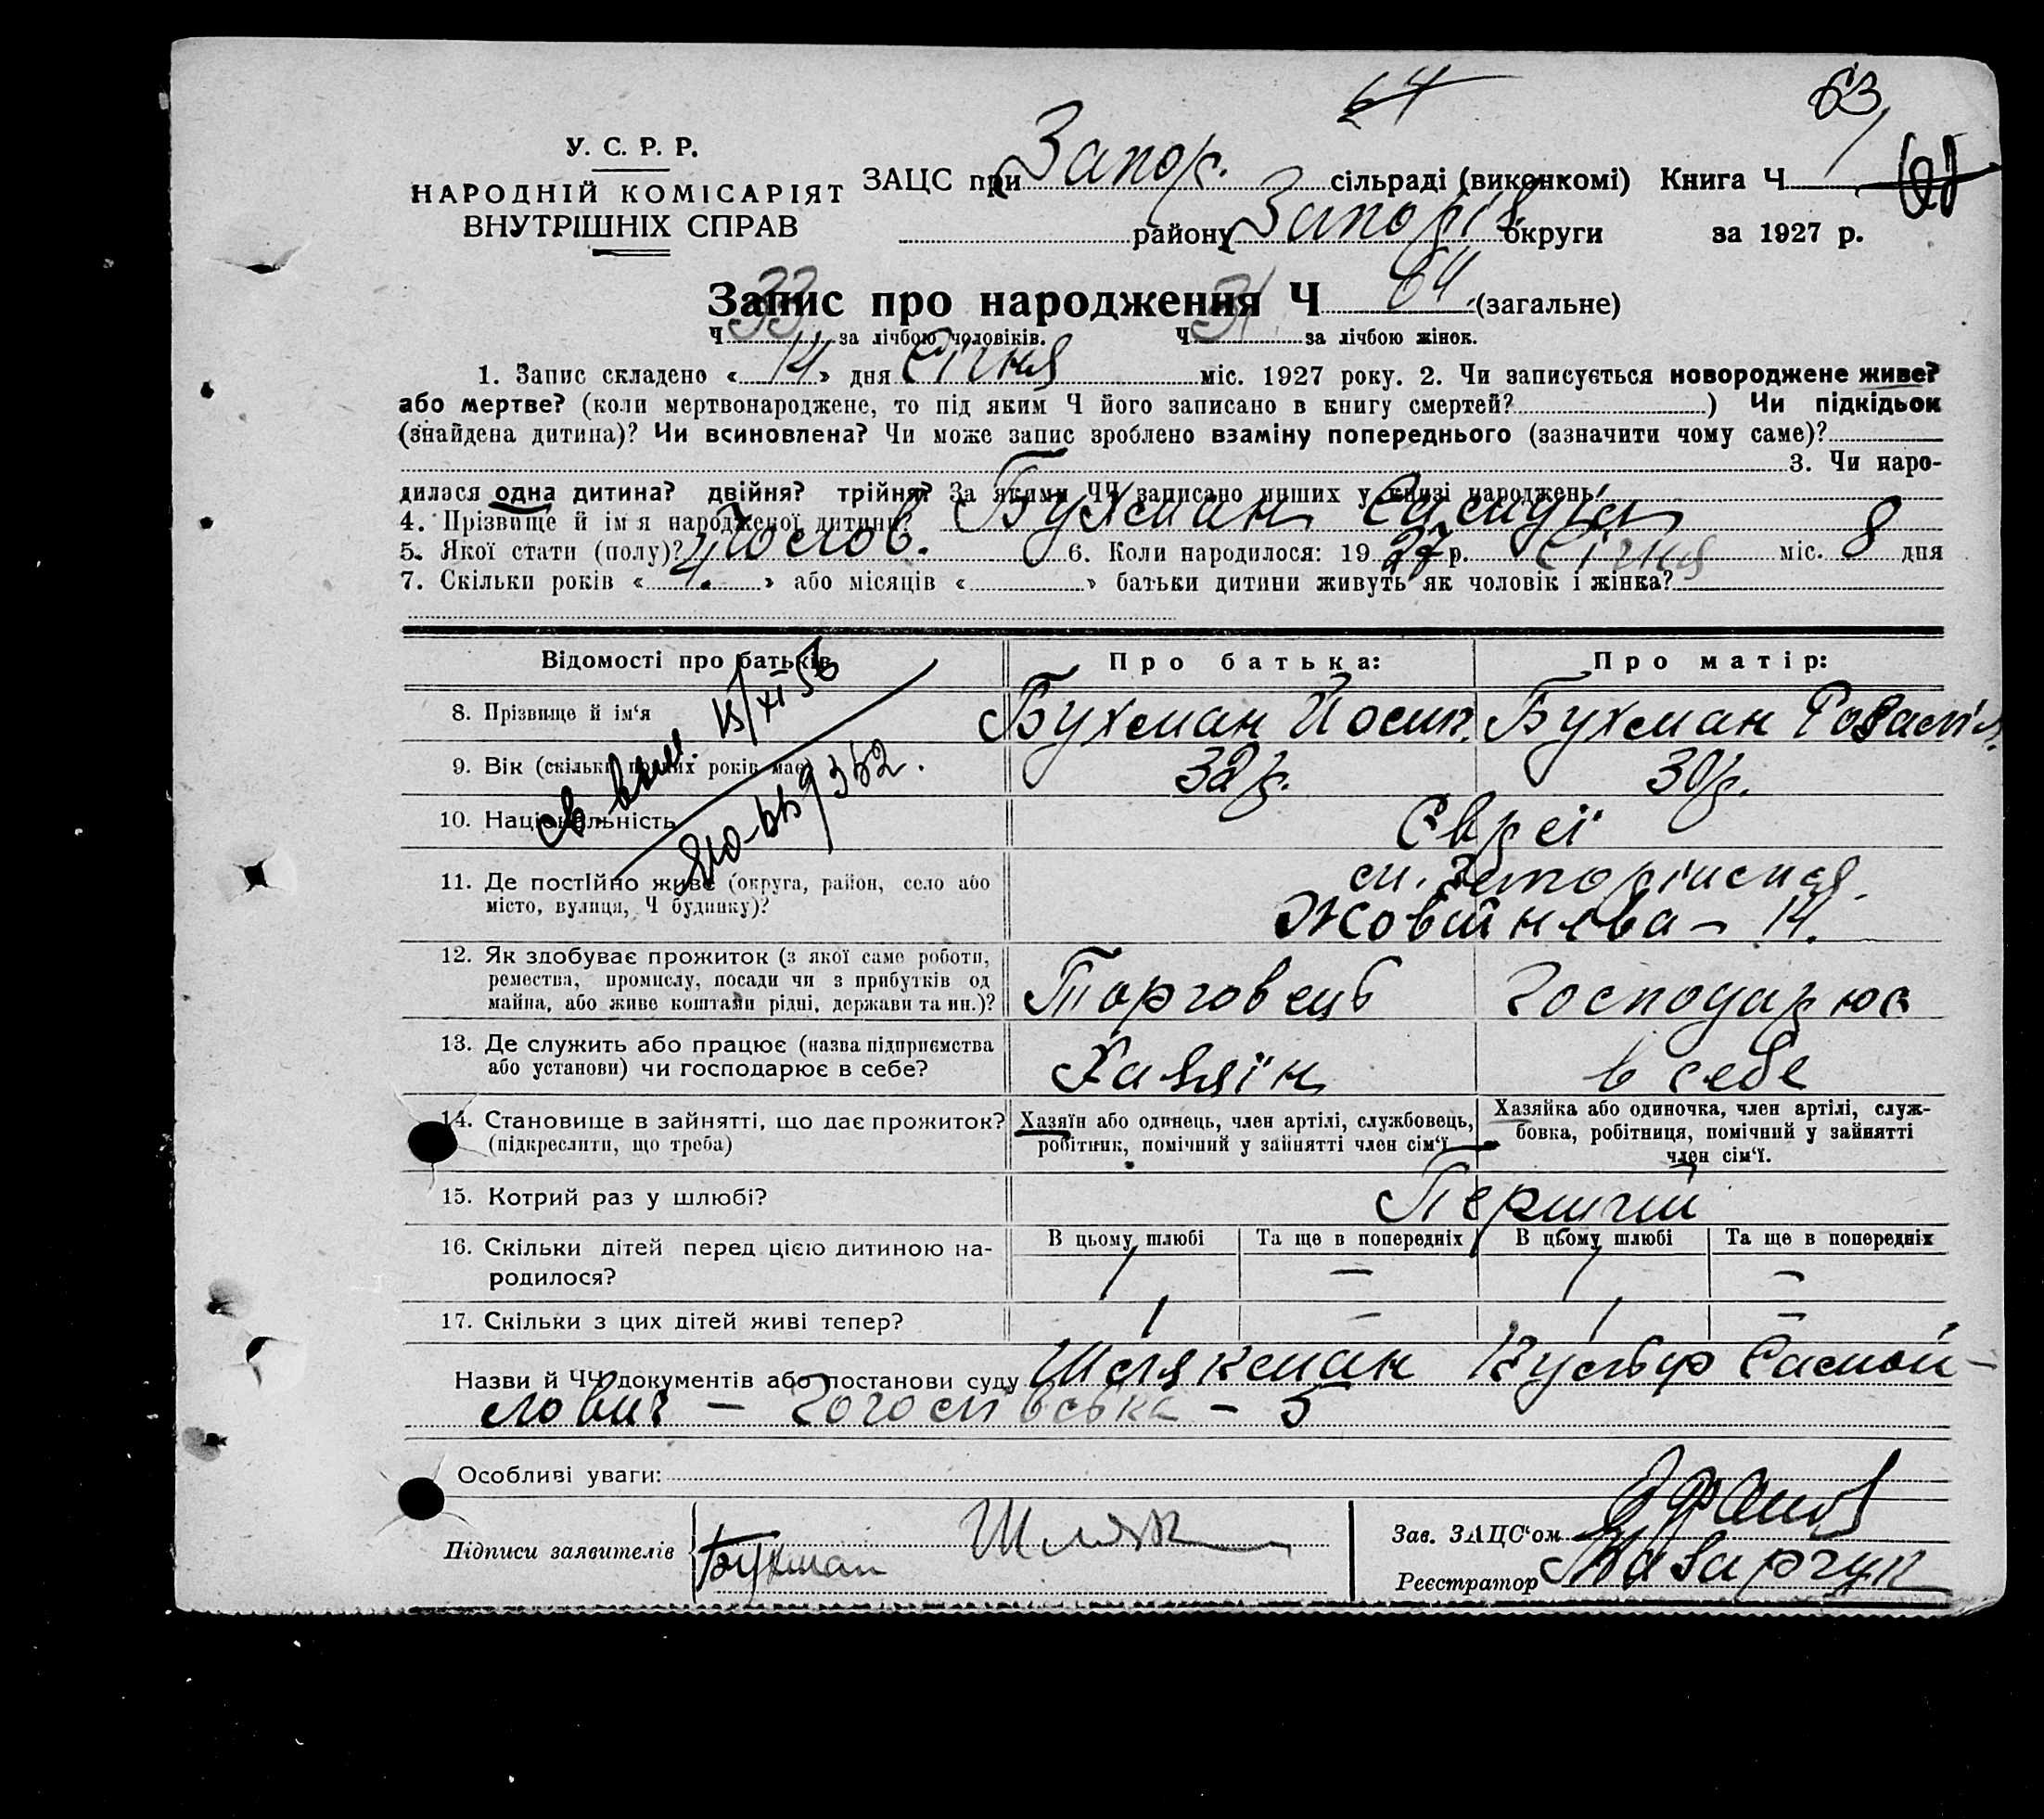 64
63
У. С. Р. Р.
НАРОДНІЙ КОМІСАРІЯТ
ВНУТРІШНІХ СПРАВ
ЗАЦС при Запор. сільраді (виконкомі) Книга Ч
району Запоріз округи за 1927 р.
Запис про народження Ч 64 (загальне)
Ч 33 за лічбою чоловіків. Ч 31 за лічбою жінок.
1. Запис складено « 14 » дня Січня міс. 1927 року. 2. Чи записується новороджене живе?
або мертве? (коли мертвонароджене, то під яким Ч його записано в книгу смертей? ) Чи підкідьок
(знайдена дитина)? Чи всиновлена? Чи може запис зроблено взаміну попереднього (зазначити чому саме)?
3. Чи наро-
дилася одна дитина? двійня? трійня? За якими ЧЧ записано инших у книзі народжень:
4. Прізвище й ім'я народженої дитини? Бухман Самуїл
5. Якої стати (полу)? Чолов. 6. Коли народилося: 19 27 р. Січня міс. 8 дня
7. Скільки років « 4 » або місяців « » батьки дитини живуть як чоловік і жінка?
Відомості про батьків Про батька: Про матір:
8. Прізвище й ім‘я Бухман Йосип. Бухман
9. Вік (скільки повних років має) 32 р. 30 р.
10. Національність Євреї
11. Де постІйно живе (округа, район, село або
місто, вулиця, Ч будинку)?
м. Запоріжжя.
Жовтнева - 14.
12. Як здобуває прожиток (з якої саме роботи,
ремества, промислу, посади чи з прибутків од
майна, або живе коштами рідні, держави та ин.)?
Торговець Господарює
13. Де служить або працює (назва підприємства
або установи) чи господарює в себе?
Хазяїн в себе
14. Становище в зайнятті, що дає прожиток?
(підкреслити, що треба)
Хазяїн або одинець, член артілі, службовець,
робітник, помічний у зайнятті член сім‘ї
Хазяйка або одиночка, член артілі, служ-
бовка, робітниця, помічний у зайнятті
член сім‘ї.
15. Котрий раз у шлюбі? Перший
16. Скільки дітей перед цією дитиною на-
родилося?
В цьому шлюбі Та ще в попередніх В цьому шлюбі Та ще в попередніх
1 — 1 —
17. Скільки з цих дітей живі тепер? 1 — 1 —
Назви й ЧЧ документів або постанови суду Самой-
лович - - 5
Особливі уваги:
Підписи заявителів Бухман
Зав. ЗАЦС‘ом
Реєстратор